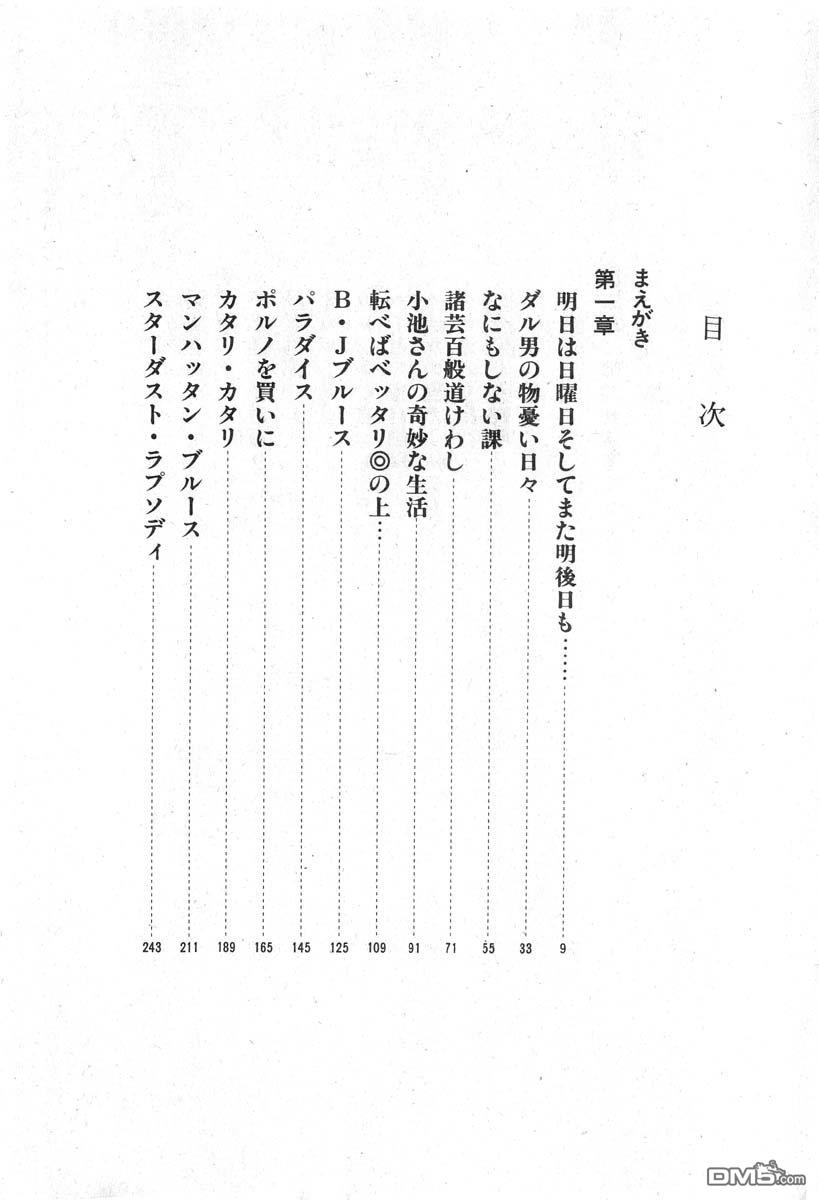 目次
まえがき
第一章
明日は日曜日そしてまた明後日も…… 9
ダル男の物憂い日々 33
なにもしない課 55
諸芸百般道けわし 71
小池さんの奇妙な生活 91
転べばベッタリ◎の上… 109
B・Jブルース 125
パラダイス 145
ポルノを買いに 165
カタリ・カタリ 189
マンハッタン・ブルース 211
スターダスト・ラプソディ 243
DM5.com